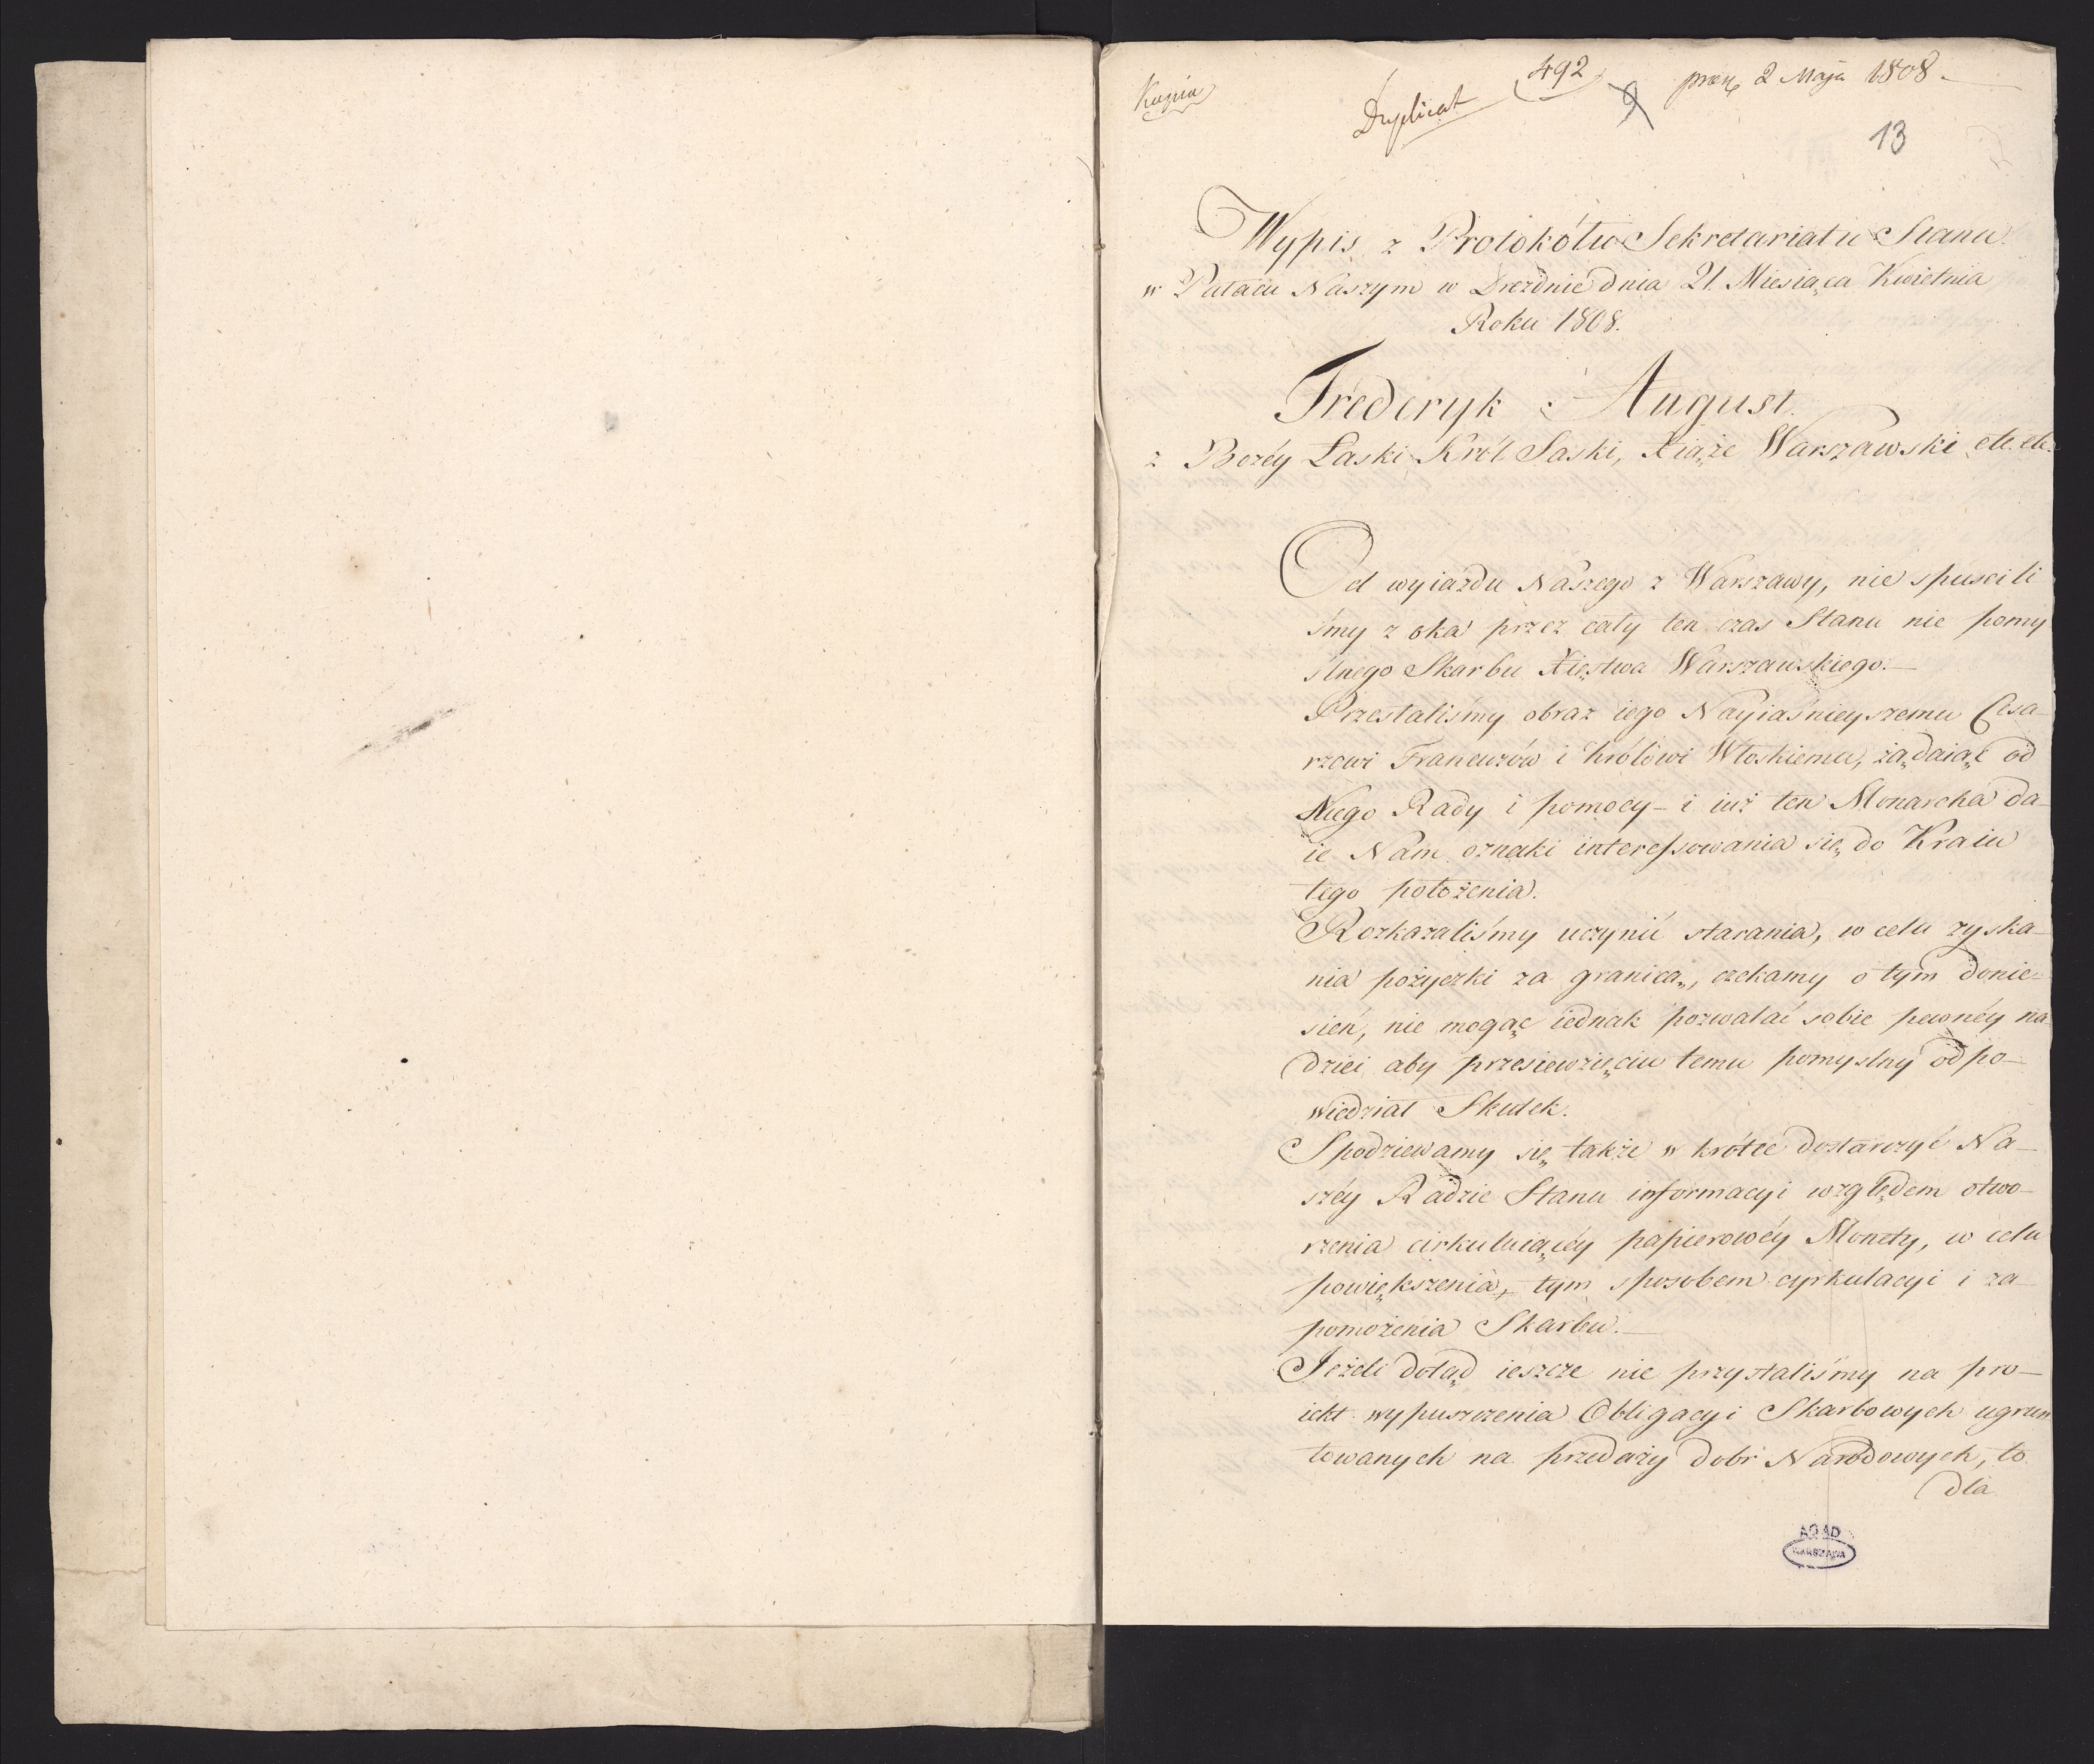 Kopia
Duplicat
492
9
præs 2 Maja 1808
13
Wypis z Protokółu Sekretariatu Stanu
w Pałacu Naszym w Dreźdnie dnia 21. Miesiąca Kwietnia
Roku 1808.
Frederyk August.
z Bożéy Łaski Król Saski, Xiąże Warszawski etc. etc.
Od wyiazdu Naszego z Warszawy, nie spuscili
śmy z oka przez cały ten czas Stanu nie pomy
ślnego Skarbu Xięstwa Warszawskiego.—
Przesłaliśmy obraz iego Nayiaśnieyszemu Cesa–
rzowi Francuzów i Królowi Włoskiemu, żądaiąc od
Niego Rady i pomocy – i iuż ten Monarcha da–
ie Nam oznaki interessowania się do Kraiu
tego położenia.
Rozkazaliśmy uczynić starania, w celu zyska–
nia pożyczki za granicą, czekamy o tym donie–
sień, nie mogąc iednak pozwalać sobie pewnéy na–
dziei aby przesiewzięciu temu pomyslny odpo–
wiedział Skutek.
Spodziewamy się także w krótce dostarczyć Na–
széy Radzie Stanu informacyi względem otwo–
rzenia cirkuluiącéy papierowéy Monety, w celu
powiększenia, tym sposobem cyrkulacyi i za–
pomożenia Skarbu.—
Jeżeli dotąd ieszcze nie przystaliśmy na pro–
iekt wypuszczenia Obligacyi Skarbowych ugrun
towanych na przedaży dobr Narodowych, to
dla
AGAD
WARSZAWA